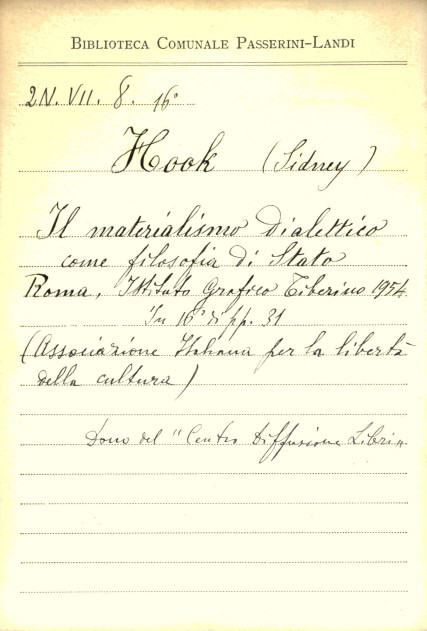 BIBLIOTECA COMUNALE PASSERINI-LANDI
2N. VII. 8. 16°
Hook (Sidney)
Il materialismo dialettico
come filosofia di Stato
Roma, Istituto Grafico Tiberino 1954
In 16° di pp. 31
(Associazione Italiana per la libertà
della cultura)
Dono del "Centro Diffusione Libri"